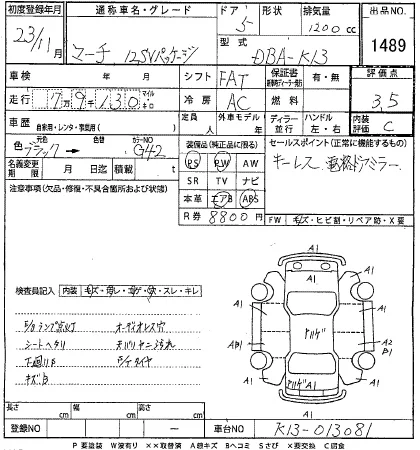 初度登録年月 通称車名・グレード ドア 形状 排気量 出品NO.
23/11月 マーチ 12SVパッケージ 5 1200cc 1489
型式 DBA-K13
車検 年 月 シフト FAT 保証書 有・無 評価点
走行 7万9千130 マイル キロ 冷房 AC 燃料 3.5
車歴 自家用・レンタ・ 定員 人 外車モデル 年 ディーラー 並行 ハンドル 左・右 内装評価 C
色 ブラック 色替 カラーNO G42 装備品(純正品に限る) セールスポイント(正常に機能するもの)
PS PW AW キーレス 電格ドアミラー
名義変更期限 月 日迄 積載 t SR TV ナビ
注意事項(欠品・修復・不具合箇所および状態) 本革 エアB ABS
R券 8800円 FW キズ・ヒビ割・リペア跡・X要
検査員記入 内装 キズ・汚レ・コゲ・穴・スレ・キレ
A1
A1 A1
A1 A1
AB1 A2 B1
A1 A1
A1
E/Gランプ点灯 オーディオレス穴
シートヘタリ 天バリヤニ汚れ
下廻りサビ
キズB
長さ cm 幅 cm 高さ cm
登録NO 車台NO K13-013081
P 要塗装 W波有り ××取替済 A線キズ Bヘコミ Sさび ×要交換 C腐食